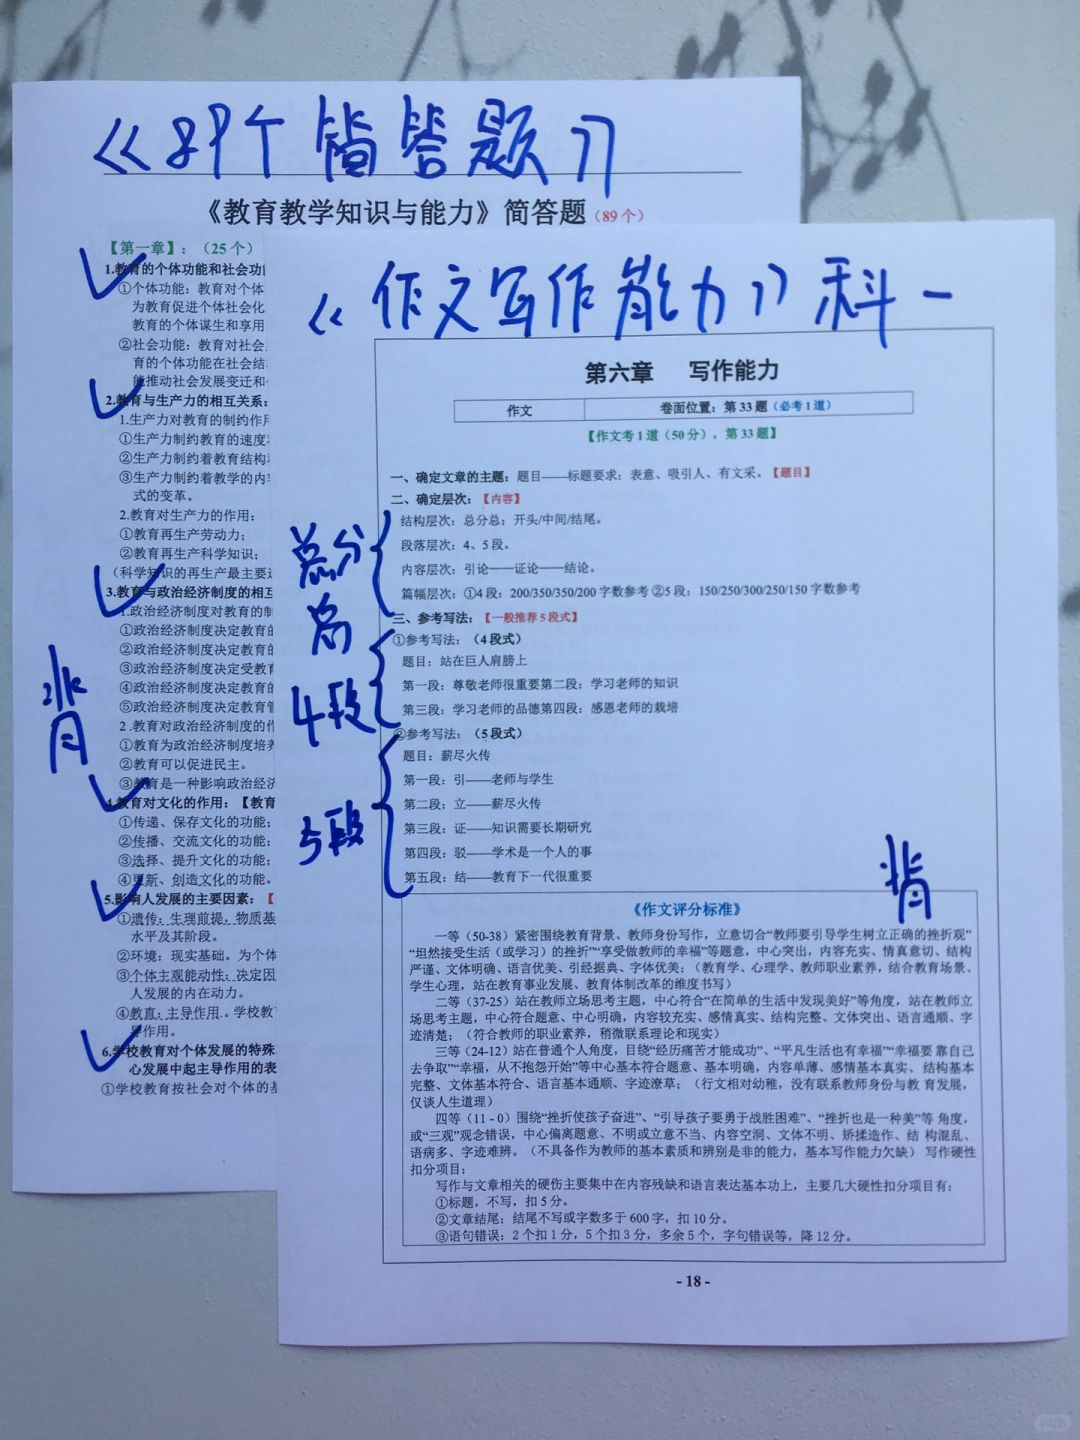 《89个简答题》
《教育教学知识与能力》简答题（89个）
【第一章】：（25个）
1.教育的个体功能和社会功
①个体功能：教育对个体
为教育促进个体社会化
教育的个体谋生和享用
②社会功能：教育对社会
育的个体功能在社会结
能推动社会发展变迁和
2.教育与生产力的相互关系：
1.生产力对教育的制约作用
①生产力制约教育的速度
②生产力制约着教育结构
③生产力制约着教学的内容
式的变革。
2.教育对生产力的作用：
①教育再生产劳动力；
②教育再生产科学知识；
（科学知识的再生产最主要
3.教育与政治经济制度的相互
1.政治经济制度对教育的制
①政治经济制度决定教育的
②政治经济制度决定教育的
③政治经济制度决定受教育
④政治经济制度决定教育的
⑤政治经济制度决定教育管
2.教育对政治经济制度的作
①教育为政治经济制度培养
②教育可以促进民主。
③教育是一种影响政治经济
4.教育对文化的作用：【教育
①传递、保存文化的功能；
②传播、交流文化的功能；
③选择、提升文化的功能；
④更新、创造文化的功能。
5.影响人发展的主要因素：【
①遗传：生理前提，物质基
水平及其阶段。
②环境：现实基础。为个体
③个体主观能动性：决定因
人发展的内在动力。
④教育：主导作用。学校教
导作用。
6.学校教育对个体发展的特殊
心发展中起主导作用的表
①学校教育按社会对个体的基
背
《作文写作能力》科一
第六章 写作能力
作文 卷面位置：第33题（必考1道）
【作文考1道（50分），第33题】
一、确定文章的主题：题目——标题要求：表意、吸引人、有文采。【题目】
二、确定层次：【内容】
结构层次：总分总；开头/中间/结尾。
段落层次：4、5段。
内容层次：引论——证论——结论。
篇幅层次：①4段：200/350/350/200字数参考 ②5段：150/250/300/250/150字数参考
总分
总
三、参考写法：【一般推荐5段式】
①参考写法：（4段式）
题目：站在巨人肩膀上
第一段：尊敬老师很重要第二段：学习老师的知识
第三段：学习老师的品德第四段：感恩老师的栽培
4段
②参考写法：（5段式）
题目：薪尽火传
第一段：引——老师与学生
第二段：立——薪尽火传
第三段：证——知识需要长期研究
第四段：驳——学术是一个人的事
第五段：结——教育下一代很重要
5段
背
《作文评分标准》
一等（50-38）紧密围绕教育背景、教师身份写作，立意切合“教师要引导学生树立正确的挫折观”
“坦然接受生活（或学习）的挫折”“享受做教师的幸福”等题意，中心突出，内容充实、情真意切、结构
严谨、文体明确、语言优美、引经据典、字体优美；（教育学、心理学、教师职业素养，结合教育场景、
学生心理，站在教育事业发展、教育体制改革的维度书写）
二等（37-25）站在教师立场思考主题，中心符合“在简单的生活中发现美好”等角度，站在教师立
场思考主题，中心符合题意、中心明确，内容较充实、感情真实、结构完整、文体突出、语言通顺、字
迹清楚；（符合教师的职业素养，稍微联系理论和现实）
三等（24-12）站在普通个人角度，目绕“经历痛苦才能成功”、“平凡生活也有幸福”“幸福要 靠自己
去争取”“幸福，从不抱怨开始”等中心基本符合题意、基本明确，内容单薄、感情基本真实、结构基本
完整、文体基本符合、语言基本通顺、字迹潦草；（行文相对幼稚，没有联系教师身份与教 育发展，
仅谈人生道理）
四等（11 - 0）围绕“挫折使孩子奋进”、“引导孩子要勇于战胜困难”、“挫折也是一种美”等 角度，
或“三观”观念错误，中心偏离题意、不明或立意不当、内容空洞、文体不明、矫揉造作、结 构混乱、
语病多、字迹难辨。（不具备作为教师的基本素质和辨别是非的能力，基本写作能力欠缺） 写作硬性
扣分项目：
写作与文章相关的硬伤主要集中在内容残缺和语言表达基本功上，主要几大硬性扣分项目有：
①标题，不写，扣5分。
②文章结尾：结尾不写或字数多于600字，扣10分。
③语句错误：2个扣1分，5个扣3分，多余5个，字句错误等，降12分。
- 18 -
小红书